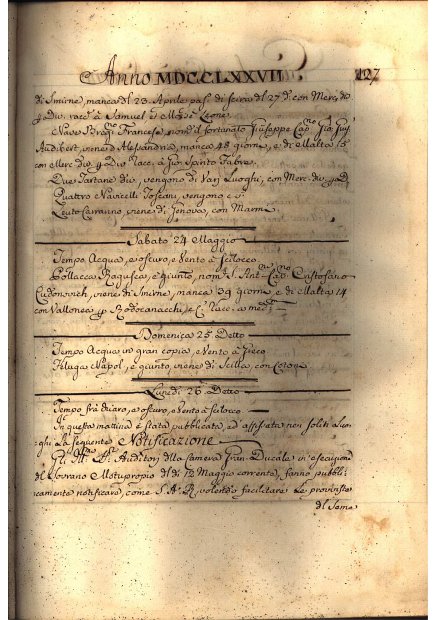 Anno MDCCLXXVII 127
di Smirne, manca dl 23. Aprile, pas. di seira dl 27. d. con Merc. div
p. Div. racc. à Samuel d. Leone.
Nave Frances, nom. il fortunato Giuseppe Cap.no Gio. Gius.
Audibert, viene d' Alesandria, manca 48 giorni, e di Malta 15
con Merc. div. p. Div. Racc. à Gio. Santo Fabre.
Due Tartane div. vengono di Varj Luoghi, con Merc. div. p. D
Quattro Navicelli Toscani, vengono c. s.
Leuto Carranno, viene di Genova, con Marmi.
Sabato 24 Maggio
Tempo Acqua, e oscuro, e Vento à Scilocco.
Pollacca Ragusea, e giunto, nom. S. Ant. Cap.no Cristofano
Ludonovich, viene di Smirne, manca 39 giorni, e di Malta 14
con Vallonea p. Rodocanacchi, e C. Racc. a med.
Domenica 25 Detto
Tempo Acqua in gran copia, e Vento à Greco
Filuga Napol. e giunto, viene di Scilla, con
Lunedi 26 Detto
Tempo frà chiaro, e oscuro, e Vento à Scilocco
In questa mattina è stata pubblicata, ed affissata nei soliti Luo-
ghi La seguente Notificazione
Gl' Ill. SS. Auditori dlla Camera Gran-Ducale in esecuzione
dl Sovrano Motuproprio dl dì Maggio corrente, fanno pubbli-
camente notificare, come S. A. R. volendo facilitare Le proviste
dl Seme